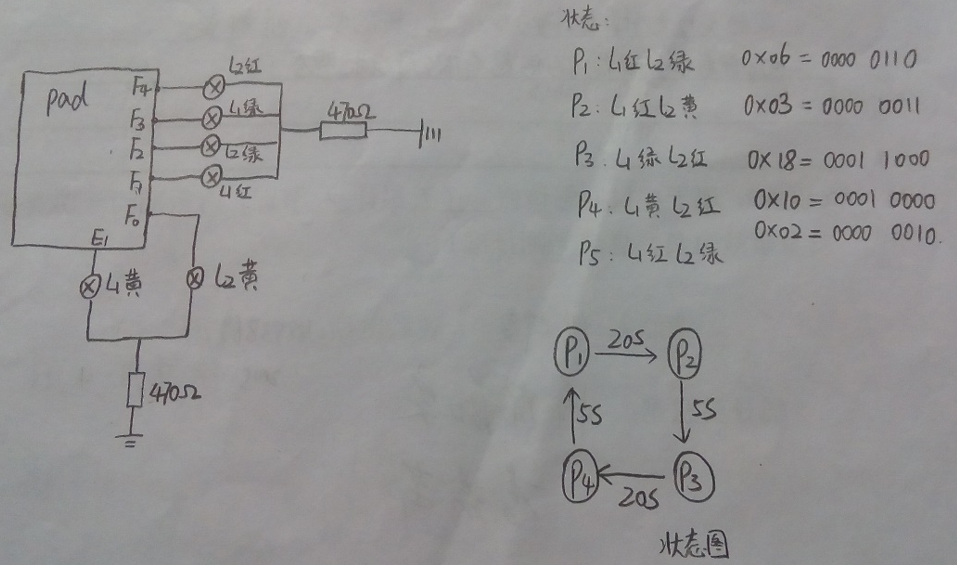 pad
F4
L2红
F3
L1绿
F2
L2绿
F1
L1红
F0
E1
470Ω
L1黄
L2黄
470Ω
状态:
P1: L1红L2绿 0x06 = 0000 0110
P2: L1红L2黄 0x03 = 0000 0011
P3. L1绿L2红 0x18 = 0001 1000
P4. L1黄L2红 0x10 = 0001 0000
0x02 = 0000 0010.
P5: L1红L2绿
P1 20S P2
5S 5S
P4 20S P3
状态图